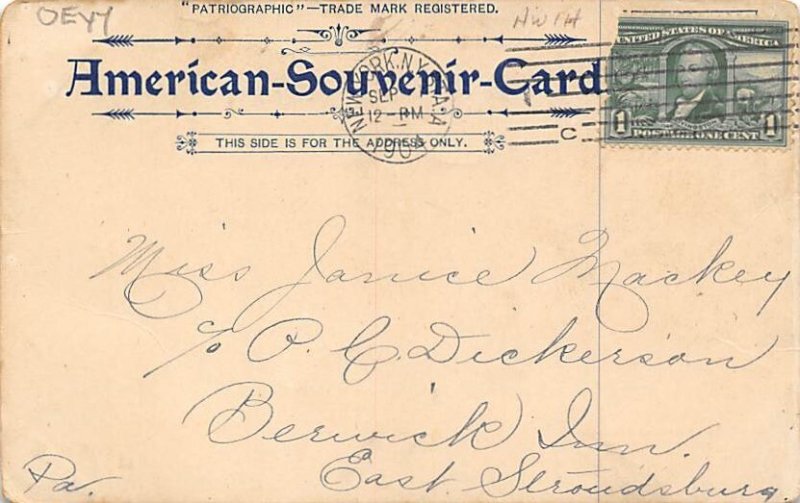 "PATRIOGRAPHIC"—TRADE MARK REGISTERED.
OEYY
HWIH
American-Souvenir-Card
THIS SIDE IS FOR THE ADDRESS ONLY.
NEW YORK, N.Y. STA. A
SEP
12-PM
C
UNITED STATES OF AMERICA
1 POSTAGE ONE CENT 1
Miss Janice Mackey
c/o P. C. Dickerson
Berwick Inn.
East Stroudsburg
Pa.